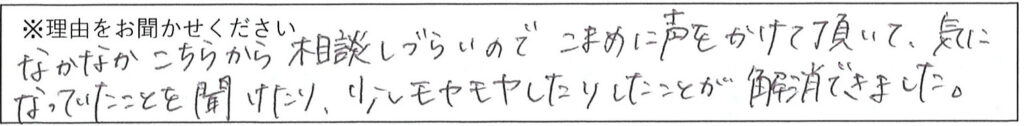 ※理由をお聞かせください
なかなかこちらから相談しづらいのでこまめに声をかけて頂いて、気に
なっていたことを聞けたり、少しモヤモヤしたりしたことが解消できました。